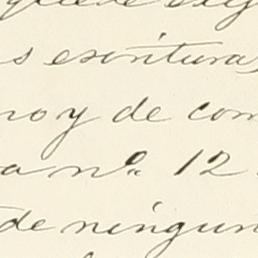 s escritura
no y de com
a nº 12
de ningun